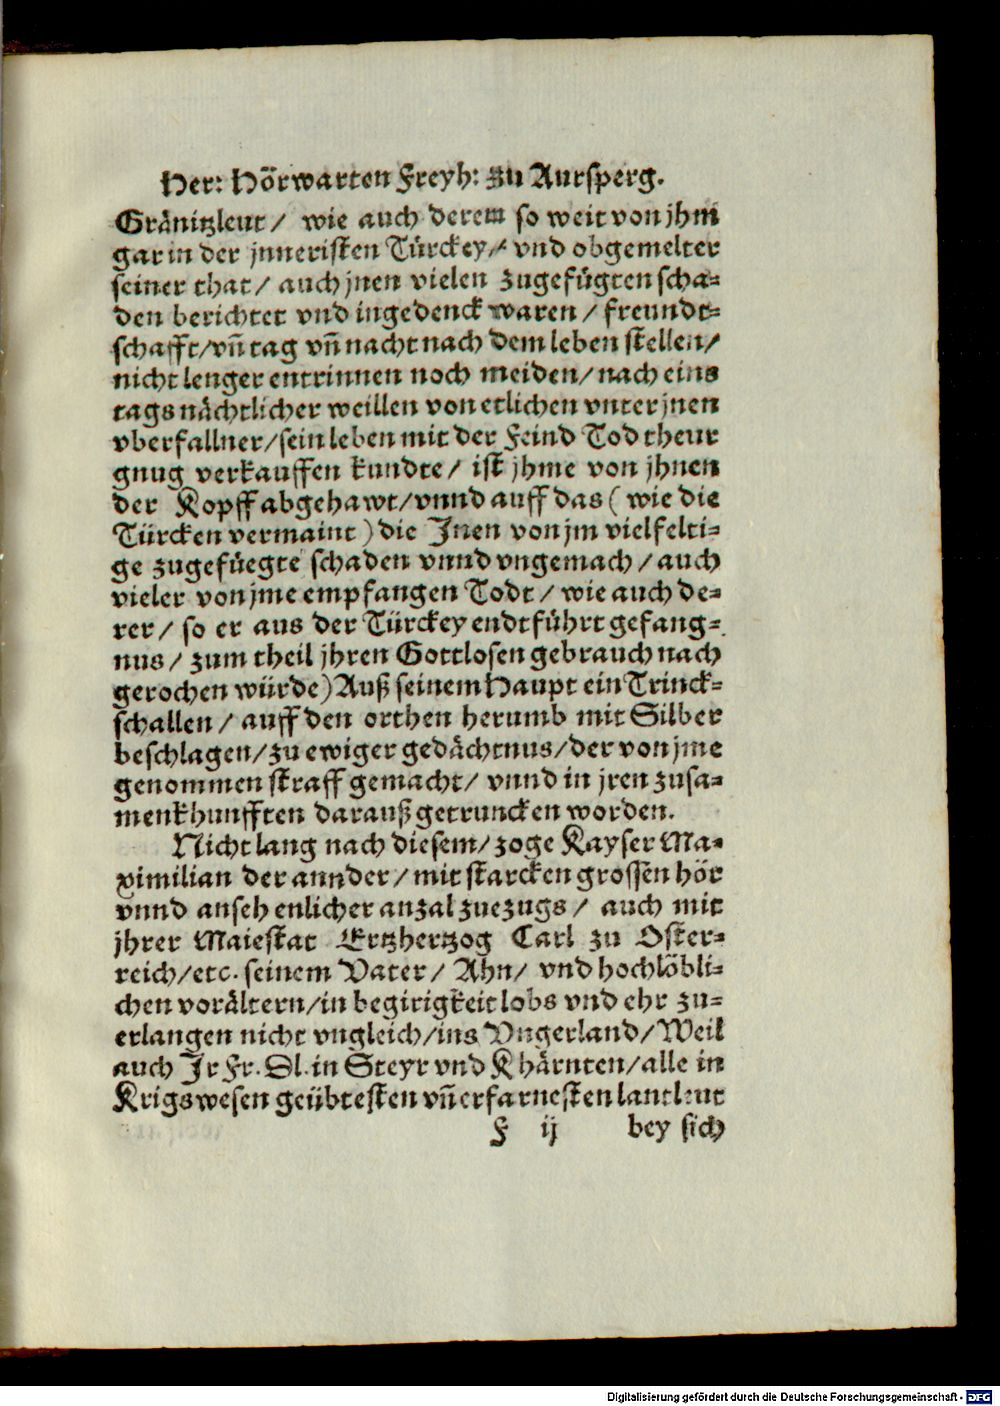 Her: Hörwarten Freyh: zu Aursperg.
Gränitzleut/ wie auch derem so weit von jhm
gar in der jnneristen Türckey/ vnd obgemelter
seiner that/ auch jnen vielen zugefügten scha-
den berichtet vnd ingedenck waren/ freundt-
schafft/ vñ tag vñ nacht nach dem leben stellen/
nicht lenger entrinnen noch meiden/ nach eins
tags nächtlicher weillen von etlichen vnter jnen
vberfallner/ sein leben mit der Feind Tod theur
gnug verkauffen kundte/ ist jhme von jhnen
der Kopff abgehawt/ vnnd auff das ( wie die
Türcken vermaint ) die Jnen von jm vielfelti-
ge zugefüegte schaden vnnd vngemach/ auch
vieler von jme empfangen Todt/ wie auch de-
rer/ so er aus der Türckey endtführt gefang-
nus/ zum theil jhren Gottlosen gebrauch nach
gerochen würde) Auß seinem Haupt ein Trinck-
schallen/ auff den orthen herumb mit Silber
beschlagen/ zu ewiger gedächtnus/ der von jme
genommen straff gemacht/ vnnd in jren zusa-
menkhunfften darauß getruncken worden.
Nicht lang nach diesem/ zoge Kayser Ma-
ximilian der annder/ mit starcken grossen hör
vnnd ansehenlicher anzal zuezugs/ auch mit
jhrer Maiestat Ertzhertzog Carl zu Oster-
reich/ etc. seinem Vater/ Ahn/ vnd hochlöbli-
chen vorältern/ in begirigkeit lobs vnd ehr zu-
erlangen nicht vngleich/ ins Vngerland/ Weil
auch Jr Fr. Dl. in Steyr vnd Khärnten/ alle in
Krigswesen geübtesten vñ erfarnesten lantleut
F ij bey sich
Digitalisierung gefördert durch die Deutsche Forschungsgemeinschaft - DFG